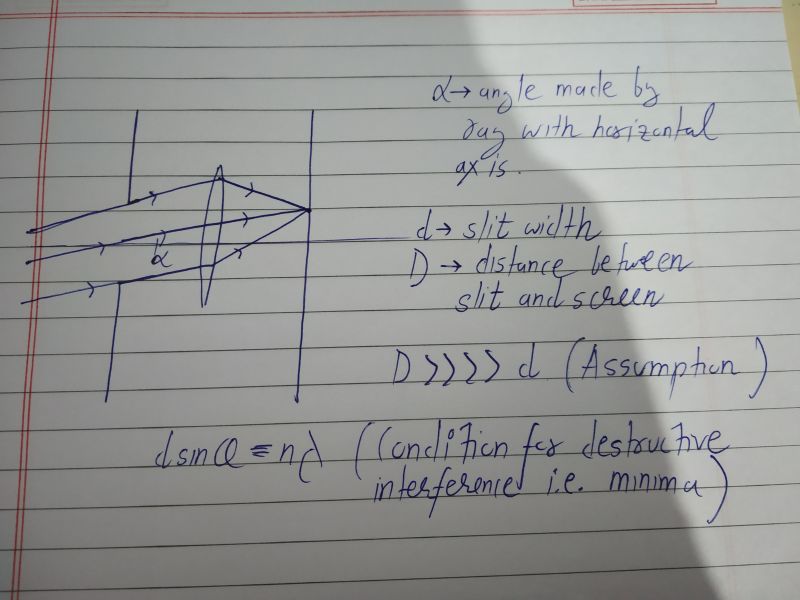 α → angle made by
ray with horizontal
axis.
α
d → slit width
D → distance between
slit and screen
D >>>> d (Assumption)
d sin θ = nλ (Condition for destructive
interference i.e. minima)